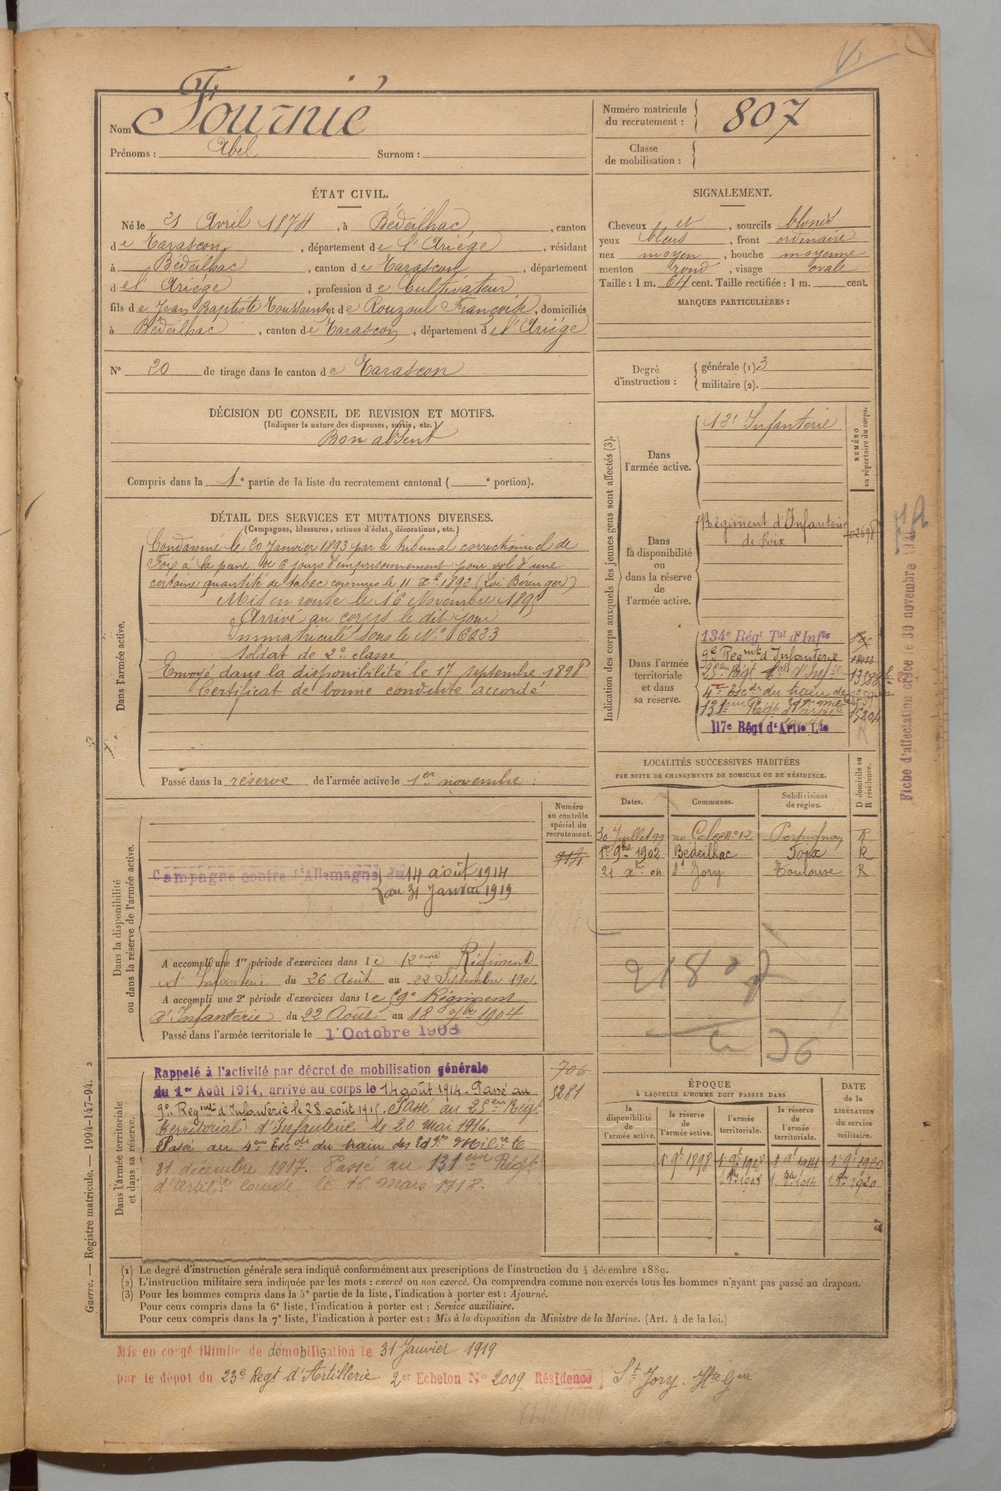 Nom Fournié
Prénoms : Abel Surnom :
Numéro matricule du recrutement : 807
Classe de mobilisation :
ÉTAT CIVIL.
Né le 21 Avril 1874, à Bédeilhac, canton
de Tarascon, département de l'Ariége, résidant
à Bédeilhac, canton de Tarascon, département
de l'Ariége, profession de Cultivateur
fils de Jean Baptiste Toussaint et de Rouzoul Françoise, domiciliés
à Bédeilhac, canton de Tarascon, département de l'Ariége
N° 20 de tirage dans le canton de Tarascon
SIGNALEMENT.
Cheveux et, sourcils blonds
yeux bleus, front ordinaire
nez moyen, bouche moyenne
menton rond, visage ovale
Taille : 1 m. 64 cent. Taille rectifiée : 1 m. cent.
MARQUES PARTICULIÈRES :
Degré d'instruction :
générale (1). 3
militaire (2).
DÉCISION DU CONSEIL DE REVISION ET MOTIFS.
(Indiquer la nature des dispenses, sursis, etc.)
Bon absent
Compris dans la 1e partie de la liste du recrutement cantonal ( e portion).
DÉTAIL DES SERVICES ET MUTATIONS DIVERSES.
(Campagnes, blessures, actions d'éclat, décorations, etc.)
Dans l'armée active.
Condamné le 20 Janvier 1893 par le tribunal correctionnel de
Foix à la peine de 6 jours d'emprisonnement pour vol d'une
certaine quantité de tabac commis le 11 Xbre 1892 (Loi Bérenger)
Mis en route le 16 Novembre 1895
Arrivé au corps le dit jour
Immatriculé sous le N° 6033
Soldat de 2e classe
Envoyé dans la disponibilité le 17 septembre 1898
Certificat de bonne conduite accordé
Passé dans la réserve de l'armée active le 1er novembre :
Indication des corps auxquels les jeunes gens sont affectés (3).
NUMÉRO au répertoire du corps.
Dans l'armée active.
12e Infanterie
Dans la disponibilité ou dans la réserve de l'armée active.
Régiment d'Infanterie
de Foix
Dans l'armée territoriale et dans sa réserve.
134e Régt Tal d'Infie
9e Regmt d'Infanterie
4e Escdn du train des
131eme Régt d'
117e Régt d'Artie Lde
Fiche d'affectation créée le 30 novembre
LOCALITÉS SUCCESSIVES HABITÉES
PAR SUITE DE CHANGEMENTS DE DOMICILE OU DE RÉSIDENCE.
Dates. Communes. Subdivisions de région. D domicile ou R résidence.
30 Juillet 99 Perpignan R
1er 9bre 1902 Bédeilhac Foix R
21 Xbre 04 St Jory Toulouse R
Numéro au contrôle spécial du recrutement.
Dans la disponibilité ou dans la réserve de l'armée active.
Campagne contre l'Allemagne du 14 août 1914
au 31 Janvier 1919
A accompli une 1re période d'exercices dans le 12eme Régiment
d'Infanterie du 26 Août au 22 Septembre 1901.
A accompli une 2e période d'exercices dans le 59e Régiment
d'Infanterie du 22 Aout au 18 7bre 1904
Passé dans l'armée territoriale le 1 Octobre 1908
Dans l'armée territoriale et dans sa réserve.
Rappelé à l'activité par décret de mobilisation générale
du 1er Août 1914, arrivé au corps le 14 août 1914. Passé au
9e Regmt d'Infanterie le 28 août 1915. Passé au 25eme Régt
Territorial d'Infanterie le 20 mai 1916.
Passé au 4eme Escdn du train des Eq. Milit le
31 décembre 1917. Passé au 131eme Régt
d'Artillie lourde le 16 mars 1918.
706
3281
21807
36
ÉPOQUE
A LAQUELLE L'HOMME DOIT PASSER DANS
la disponibilité de l'armée active. la réserve de l'armée active. l'armée territoriale. la réserve de l'armée territoriale.
DATE de la LIBÉRATION du service militaire.
1er 9bre 1898 1er 9bre 1908 1er 9bre 1914 1er 9bre 1920
Guerre. — Registre matricule. — 1994-147-94. 2
(1) Le degré d'instruction générale sera indiqué conformément aux prescriptions de l'instruction du 4 décembre 1889.
(2) L'instruction militaire sera indiquée par les mots : exercé ou non exercé. On comprendra comme non exercés tous les hommes n'ayant pas passé au drapeau.
(3) Pour les hommes compris dans la 5e partie de la liste, l'indication à porter est : Ajourné.
Pour ceux compris dans la 6e liste, l'indication à porter est : Service auxiliaire.
Pour ceux compris dans la 7e liste, l'indication à porter est : Mis à la disposition du Ministre de la Marine. (Art. 4 de la loi.)
Mis en congé illimité de démobilisation le 31 Janvier 1919
par le dépôt du 23e Regt d'Artillerie 2er Echelon N° 2009 Résidence St Jory. Hte Gne